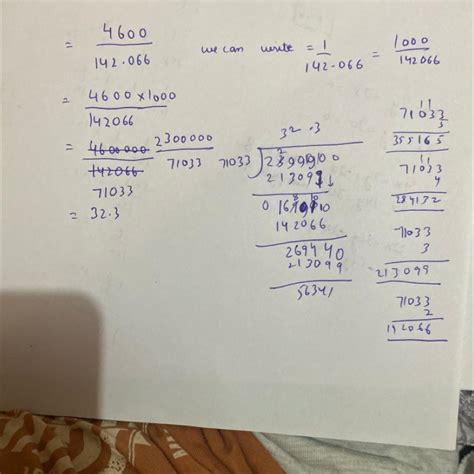 = 4600 / 142.066 we can write = 1 / 142.066 = 1000 / 142066
= 4600 x 1000 / 142066
= 4600000 / 142066 2300000 / 71033
71033
= 32.3
32.3
71033
213099
142066
269440
213099
56341
71033
5
355165
71033
4
284132
71033
3
213099
71033
2
142066